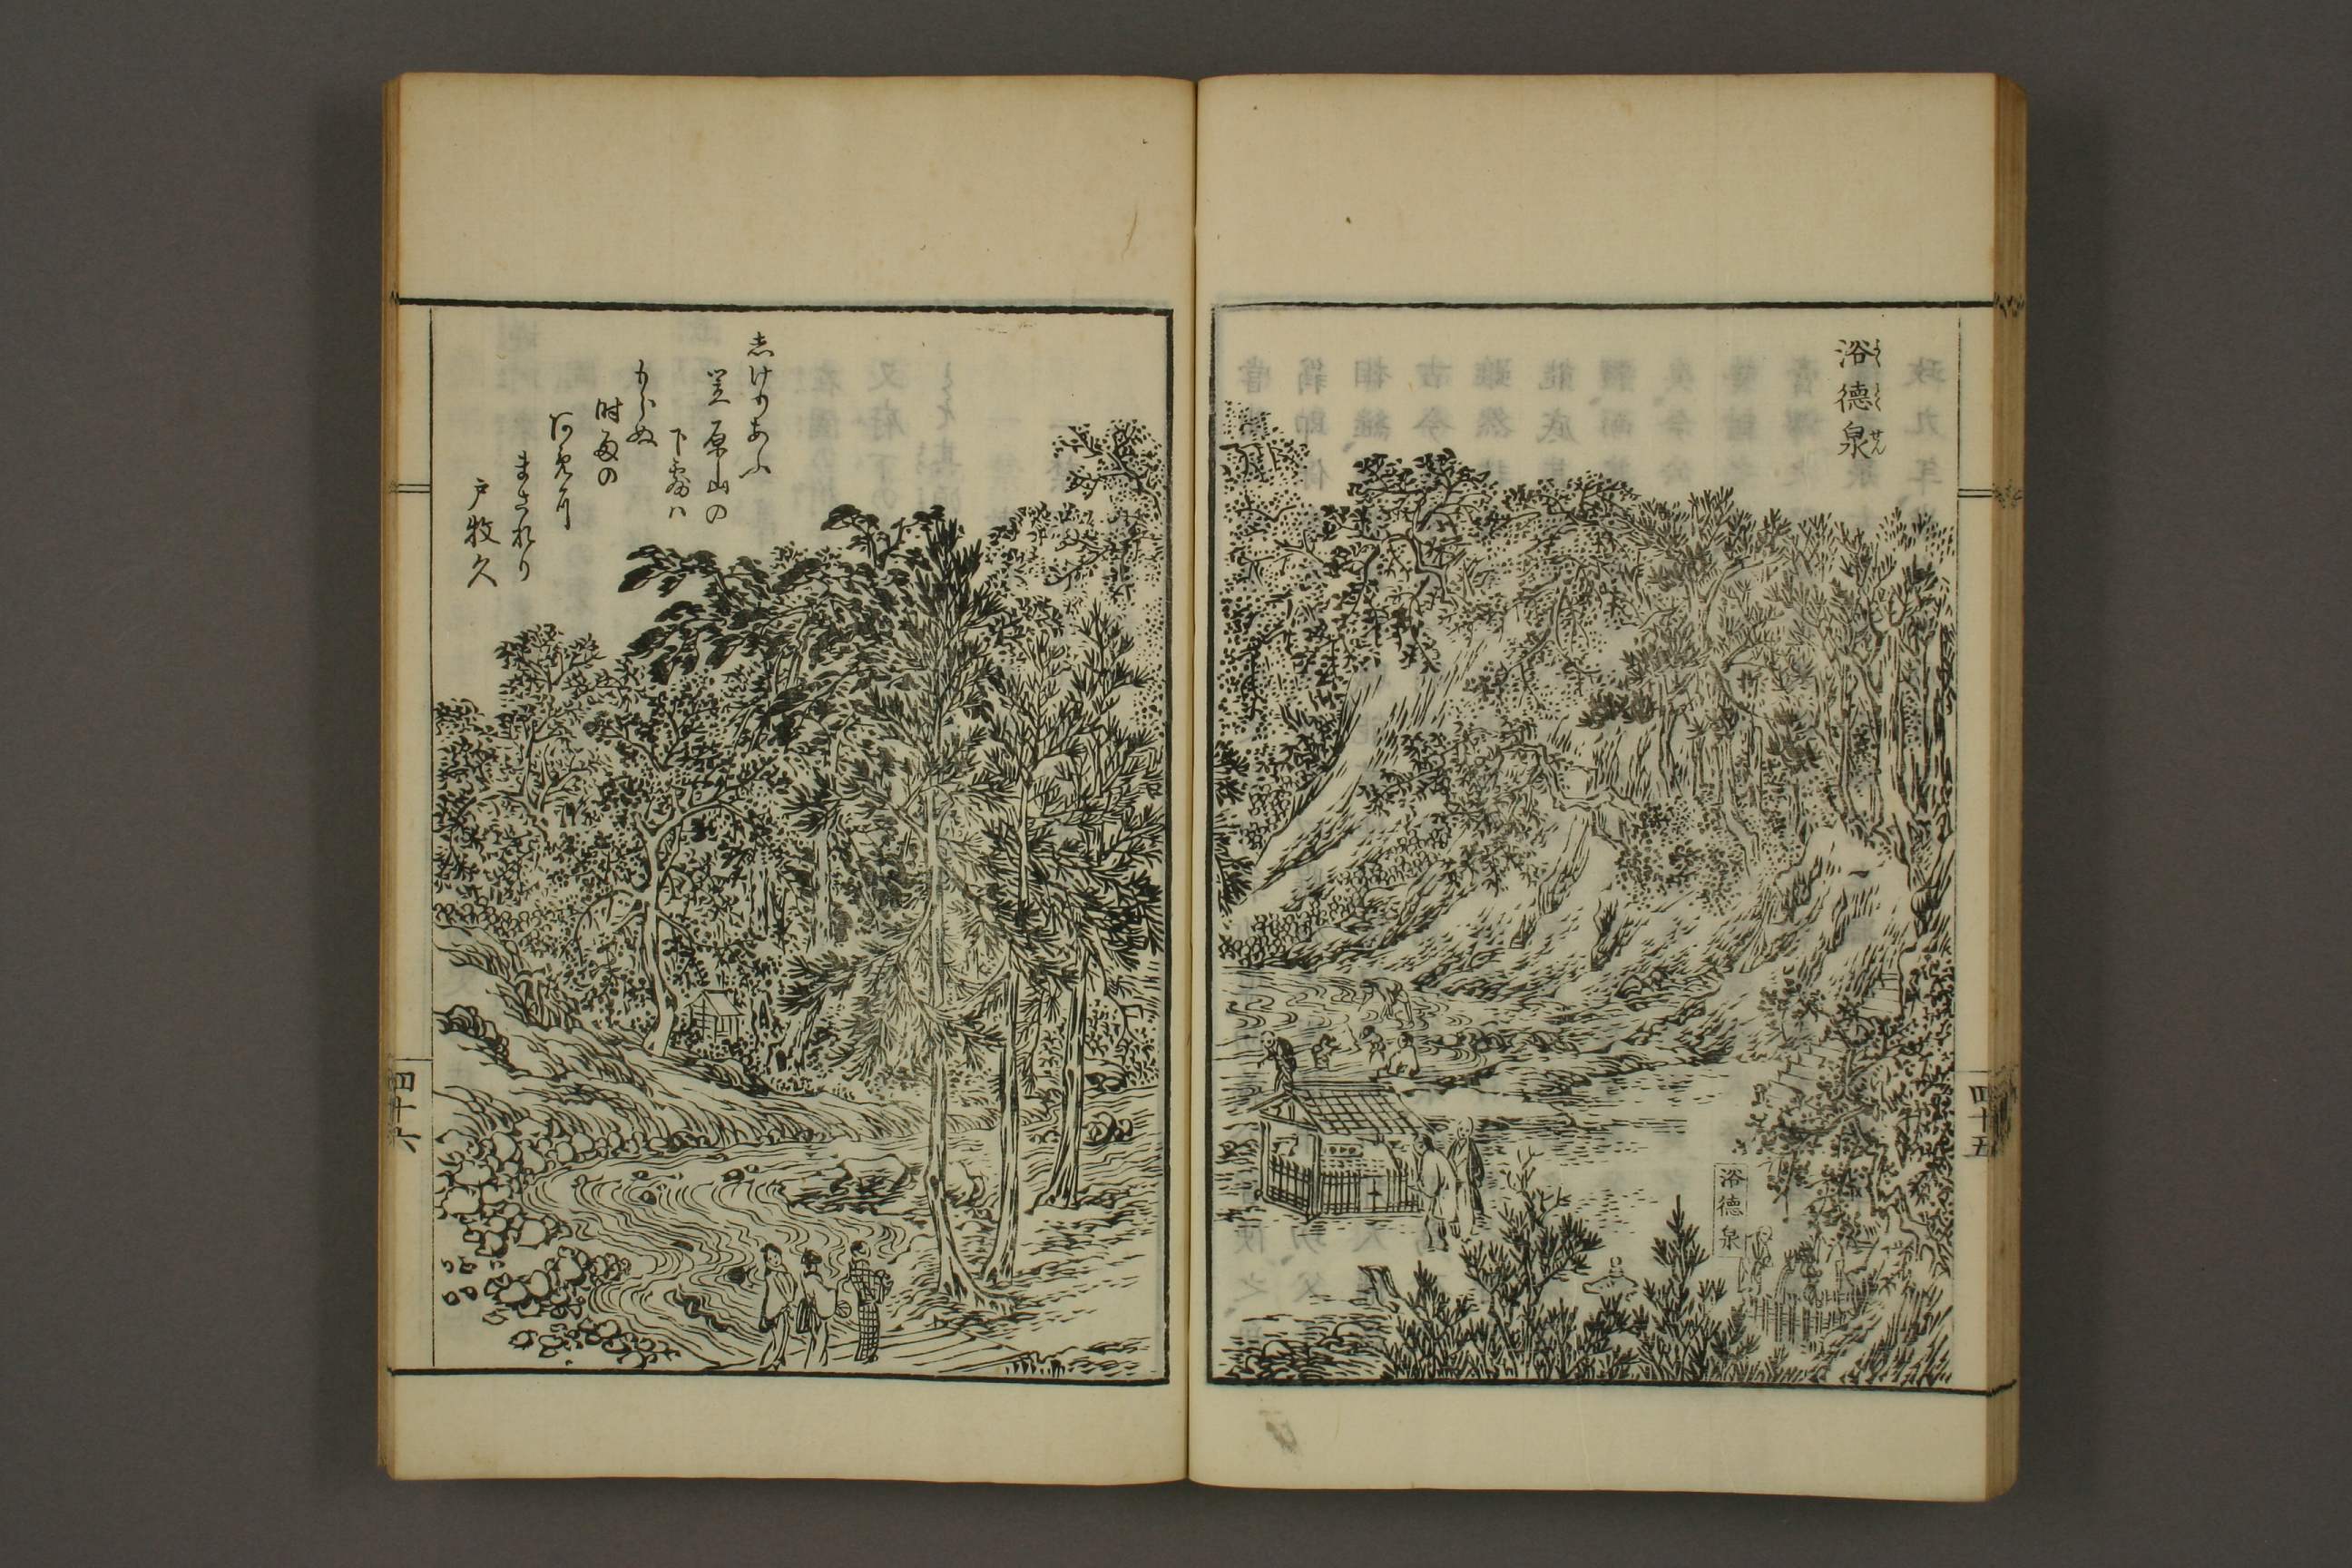 浴德泉
よくとくせん
浴德泉
四十五
志けりあふ
笠原山の
下露ハ
もらぬ
時雨の
まされり
戸牧久
四十六